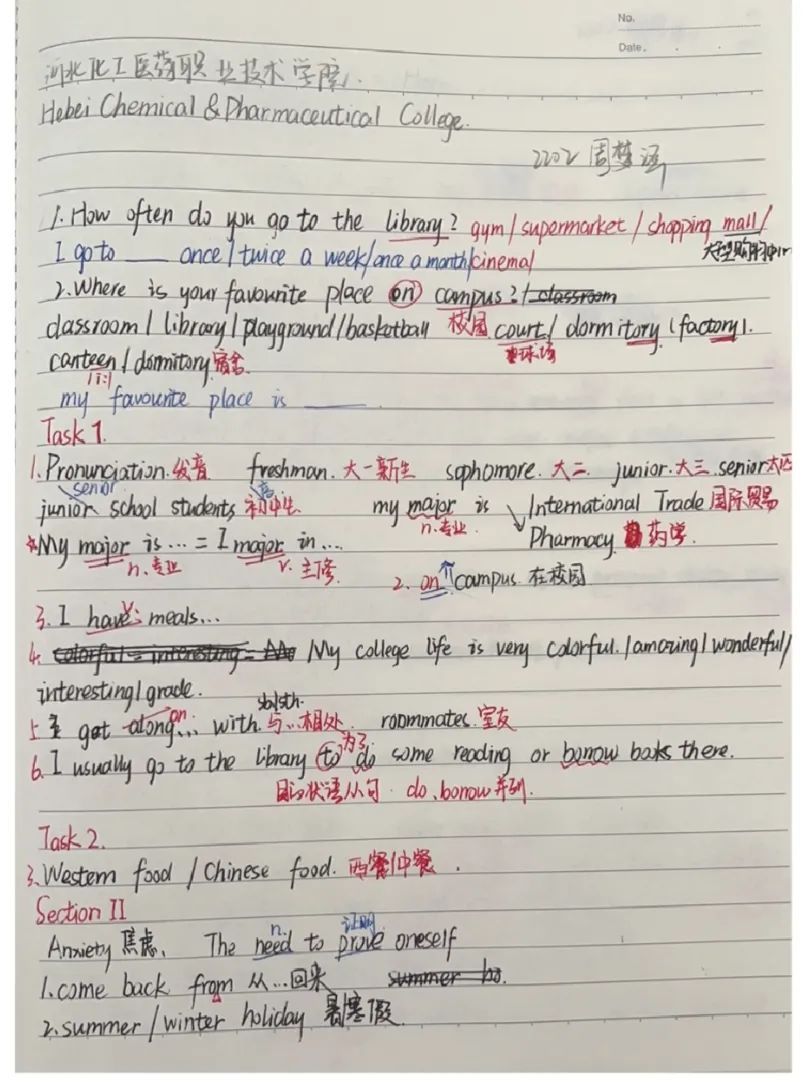 No.
Date.
河北化工医药职业技术学院
Hebei Chemical & Pharmaceutical College.
2202 周梦涵
1. How often do you go to the library? gym / supermarket / shopping mall /
I go to ____ once / twice a week / once a month / cinema / 大型购物中心
2. Where is your favourite place on campus? / classroom
classroom / library / playground / basketbay 校园 court / dormitory (factory).
球场
canteen / dormitory 宿舍
my favourite place is ____
Task 1.
1. Pronunciation. 发音 freshman. 大一新生 sophomore. 大二 junior. 大三 senior 大四
senior 高
junior school students 初中生 my major is International Trade 国际贸易
n. 专业 Pharmacy 药学
My major is ... = I major in ...
n. 专业 v. 主修 2. on campus 在校园
3. I have meals...
4. colorful = interesting = My college life is very colorful. / amazing / wonderful /
interesting / grade.
sb/sth.
5. get along ... with 与...相处 roommates 室友
on
为了
6. I usually go to the library to do some reading or borrow boks there.
目的状语从句 do. borrow 并列.
Task 2.
3. Western food / Chinese food. 西餐/中餐.
Section II
n. 证明
Anxiety 焦虑. The need to prove oneself
1. come back from 从...回来 summer ho.
2. summer / winter holiday 暑寒假